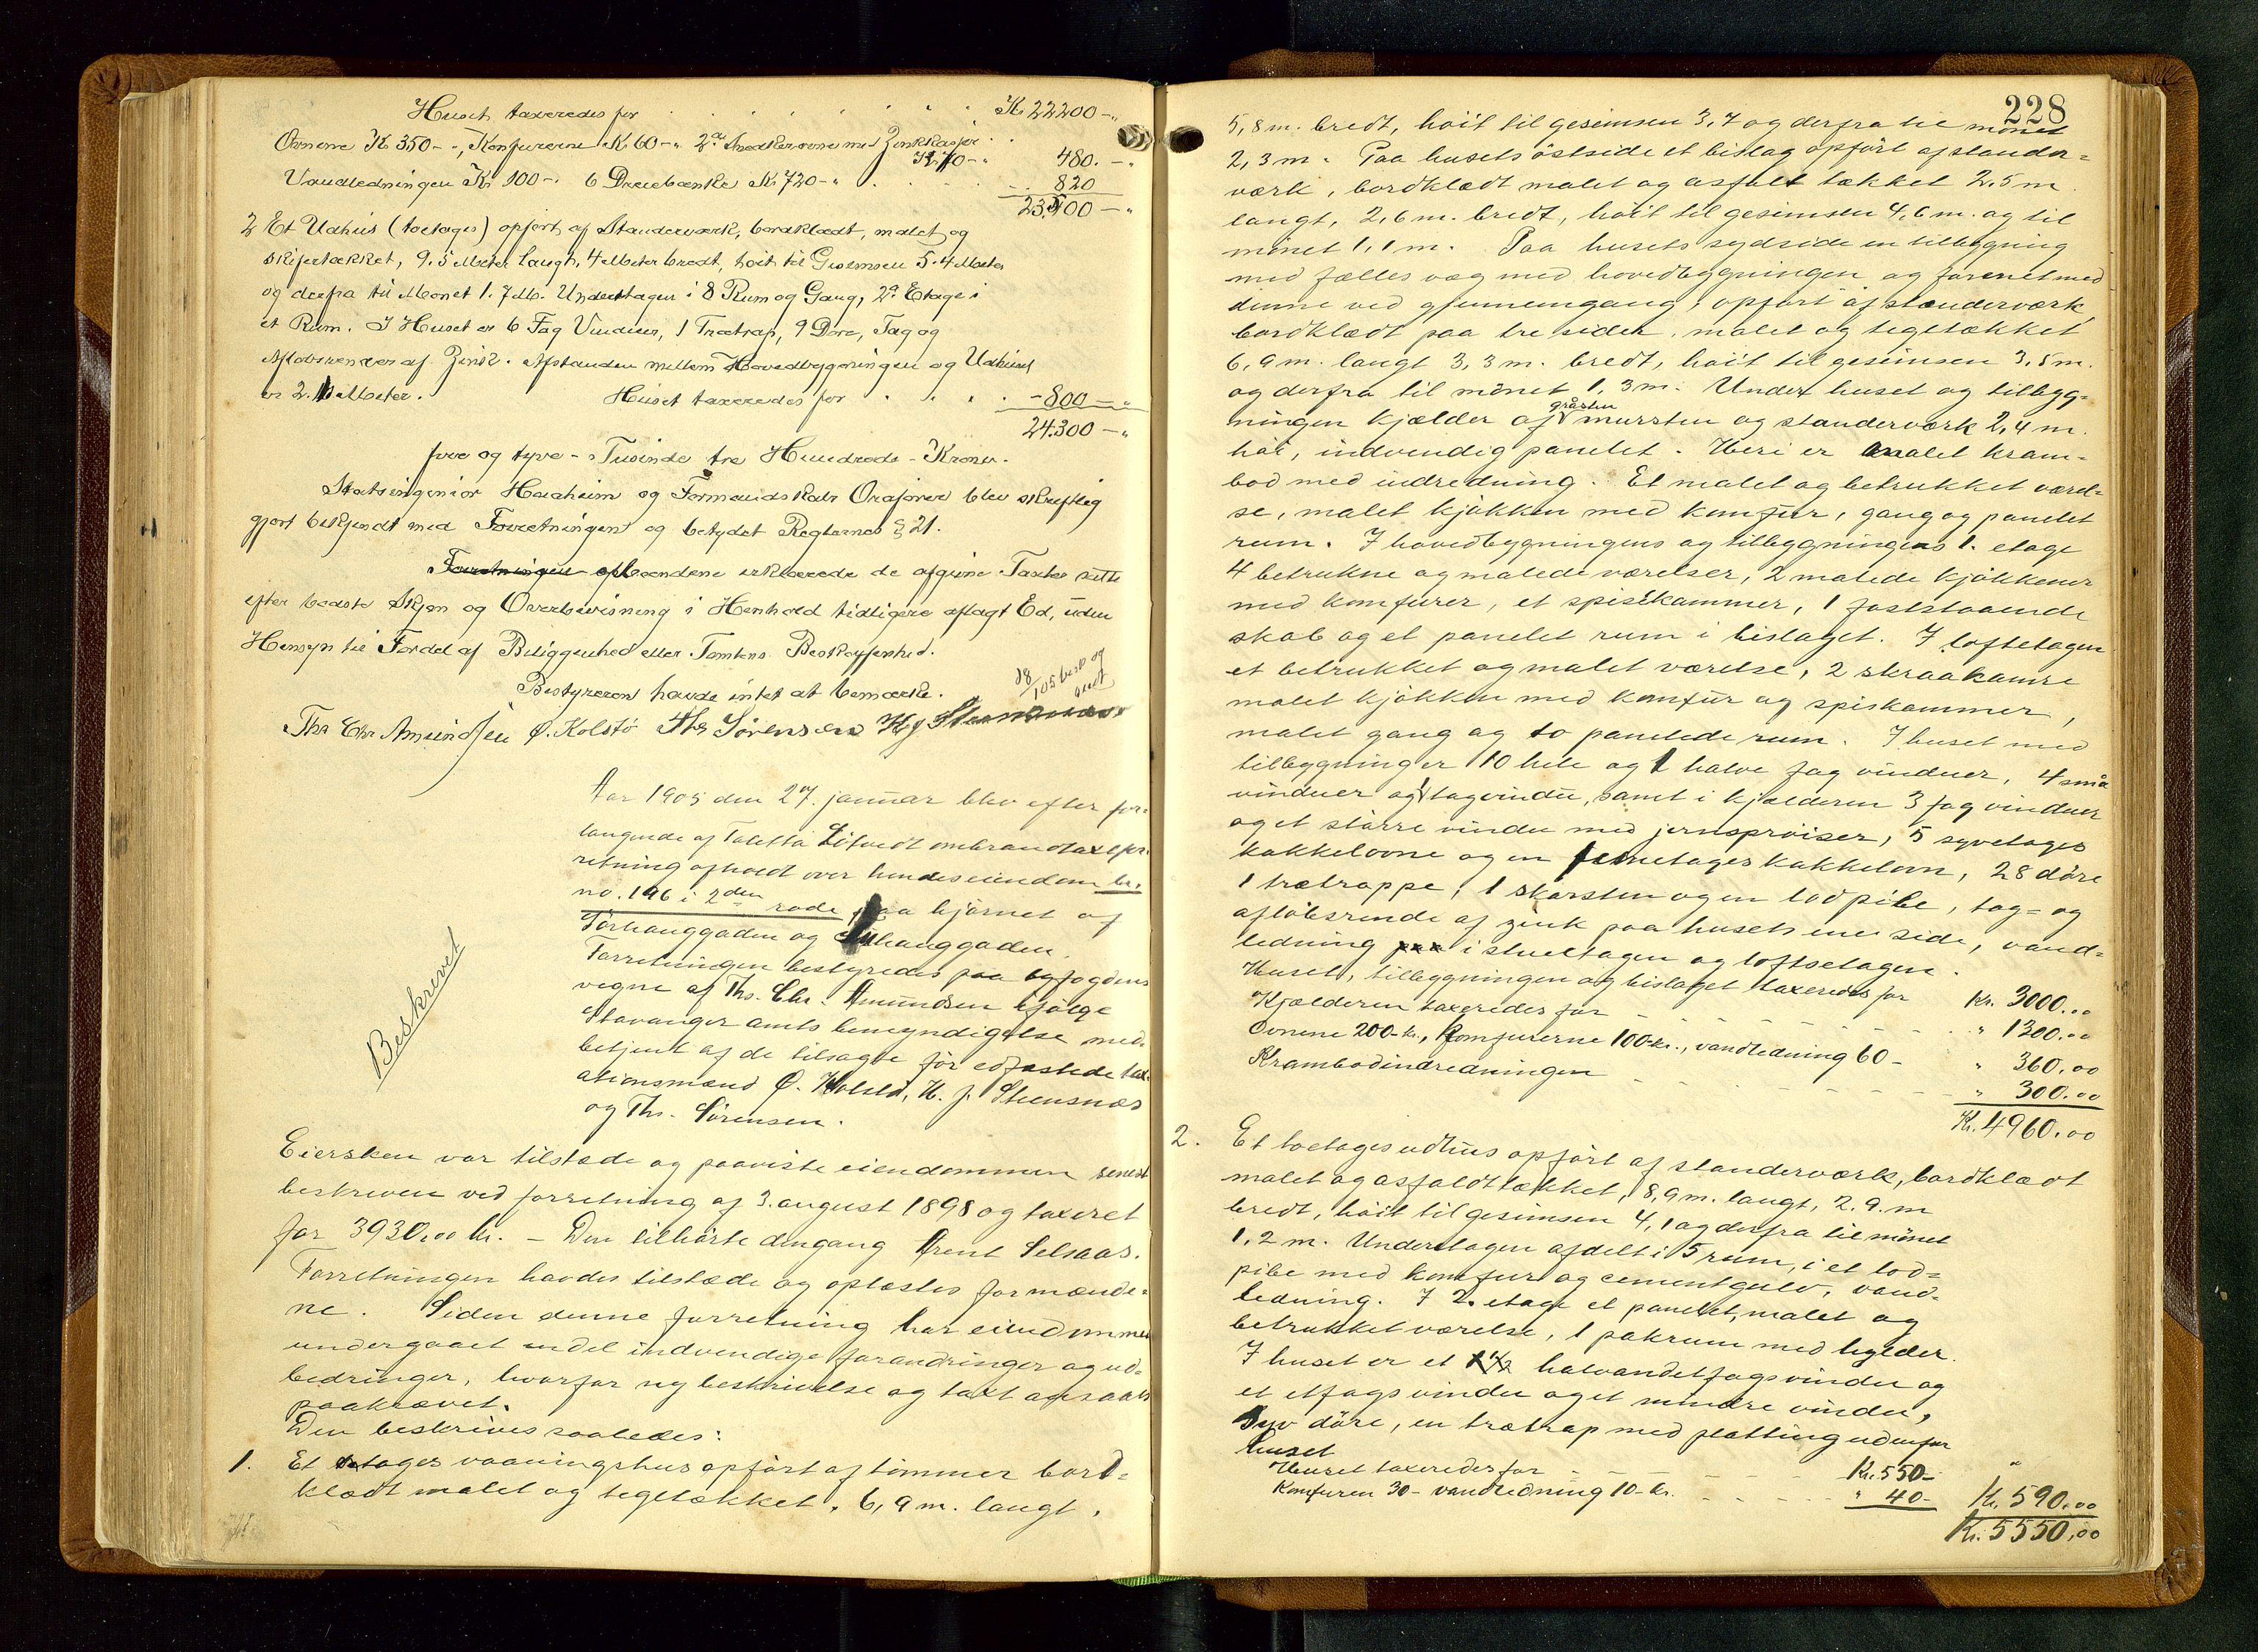 Huset taxeredes for . . . . . . . Kr 22200 - "
Ovnene Kr 350 - ", Komfurerne Kr 60 - " 2de Kr 70 - " 480. - "
Vandledningen Kr 100 -. 6 Dreiebænke Kr 720 - " . . . . 820
23.500 - "
2 Et Udhus (toetages) opført af Standerværk, bordklædt, malet og
skifertækket, 9.5 Meter langt, 4 Meter bredt, høit til Gesimsen 5.4 Meter
og derfra til Mønet 1.7 M. Underetagen i 8 Rum og Gang, 2den Etage i
et Rum. I Huset er 6 Fag Vinduer, 1 Trætrap, 9 Døre, Tag og
Afløbsrender af Zink. Afstanden mellem Hovedbygningen og Udhuset
er 2. Meter. Huset taxeredes for . . . . - 800 - "
24.300 - "
fire og tyve - Tusinde tre Hundrede - Kroner.
Stadsingeniør Haaheim og Formandskabs Ordfører blev skriftlig
gjort bekjendt med Forretningen og betydet Reglernes § 21.
Forretningen erklærede de afgivne Taxter satte
efter bedste Skjøn og Overbevisning i Henhold tidligere aflagt Ed, uden
Hensyn til Fordel af Beliggenhed eller Tomtens Beskaffenhed.
Bestyreren havde intet at bemærke.
Ths Chr Amundsen Ø. Kolstø Ths Sørensen H J Steensnæs
Aar 1905 den 27. januar blev efter for-
langende af Taletta om brandtaxtfor-
retning afholdt over hendes eiendom br.
no. 196 i 2den rode paa hjørnet af
og
Forretningen bestyredes paa byfogdens
vegne af Ths. Chr. Amundsen ifølge
Stavanger amts bemyndigelse med-
betjent af de tilsagte før edfæstede tax-
ationsmænd Ø. Kolstø, H. J. Steensnæs
og Ths. Sørensen.
Beskrevet
Eiersken var tilstede og paaviste eiendommen senest
beskreven ved forretning af 3. august 1898 og taxeret
for 3930,00 kr. - Den tilhørte dengang Arent Selsaas.
Forretningen havdes tilstede og oplæstes for mænde-
ne. Siden denne forretning har eiendommen
undergaaet endel indvendige forandringer og ud-
bedringer, hvorfor ny beskrivelse og taxt ogsaa
paakrævet.
Den beskrives saaledes:
1. Et etages vaaningshus opført af tømmer bord-
klædt malet og tegltækket, 6,9 m. langt,
228
5,8 m. bredt, høit til gesimsen 3,7 og derfra til mønet
2,3 m. Paa husets østside et bislag opført af stander-
værk, bordklædt malet og asfalt tækket 2,5 m.
langt, 2,6 m. bredt, høit til gesimsen 4,6 m. og til
mønet 1,1 m. Paa husets sydside en tilbygning
med fælles væg med hovedbygningen og forenet med
denne ved gjennemgang, opført af standerværk
bordklædt paa tre sider, malet og tegltækket
6,9 m. langt 3,3 m. bredt, høit til gesimsen 3,5 m.
og derfra til mønet 1,3 m. Under huset og tilbyg-
ningen kjælder af gråsten mursten og standerværk 2,4 m.
høi, indvendig panelet. Heri er malet kram-
bod med indredning. Et malet og betrukket værel-
se, malet kjøkken med komfur, gang og panelet
rum. I hovedbygningens og tilbygningens 1. etage
4 betrukne og malede værelser, 2 malede kjøkkener
med komfurer, et spiskammer, 1 faststaaende
skab og et panelet rum i bislaget. I loftetagen
et betrukket og malet værelse, 2 skraakamre
malet kjøkken med komfur og spiskammer,
malet gang og to panelede rum. I huset med
tilbygning er 10 hele og 1 halve fag vinduer, 4 små
vinduer og 1 tagvindu, samt i kjælderen 3 fag vinduer
og et større vindu med jernsproiser, 5 syvetages
kakkelovne og en femetages kakkelovn, 28 døre
1 trætrappe, 1 skorsten og en lodpibe, tag- og
afløbsrende af zink paa husets ene side, vand-
ledning i stueetagen og loftsetagen.
Huset, tilbygningen og bislaget taxeredes for Kr. 3000.00
Kjælderen taxeredes for - - - - - " 1300.00
Ovnene 200 - kr., komfurerne 100 kr., vandledning 60 - " 360.00
Krambodindredningen - - - - - " 300.00
Kr. 4960.00
2. Et toetages udhus opført af standerværk, bordklædt
malet og asfaldt tækket, 8,9 m. langt, 2.9. m
bredt, høit til gesimsen 4,1 og derfra til mønet
1.2 m. Underetagen afdelt i 5 rum, i et lod-
pibe med komfur og cementgulv, vand-
ledning. I 2. etage et panelet, malet og
betrukket værelse, 1 pakrum med hylder.
I huset er et halvandetfagsvindu og
et etfagsvindu og et mindre vindu,
syv døre, en trætrap med platting udenfor
huset
Huset taxeredes for - - - - Kr. 550 -
Komfuren 30 - vandledning 10 - kr. - - - - " 40 - Kr. 590.00
Kr. 5550,00